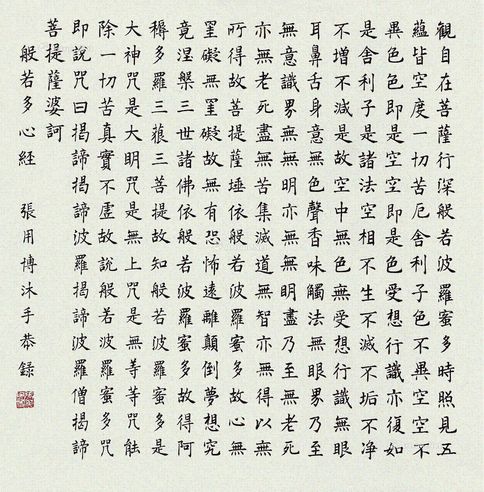 觀自在菩薩行深般若波羅蜜多時照見五
蘊皆空度一切苦厄舍利子色不異空空不
異色色即是空空即是色受想行識亦復如
是舍利子是諸法空相不生不滅不垢不净
不增不減是故空中無色無受想行識無眼
耳鼻舌身意無色聲香味觸法無眼界乃至
無意識界無無明亦無無明盡乃至無老死
亦無老死盡無苦集滅道無智亦無得以無
所得故菩提薩埵依般若波羅蜜多故心無
罣礙無罣礙故無有恐怖遠離顛倒夢想究
竟涅槃三世諸佛依般若波羅蜜多故得阿
耨多羅三藐三菩提故知般若波羅蜜多是
大神咒是大明咒是無上咒是無等等咒能
除一切苦真實不虛故說般若波羅蜜多咒
即說咒曰揭諦揭諦波羅揭諦波羅僧揭諦
菩提薩婆訶
般若多心経 張用博沐手恭錄